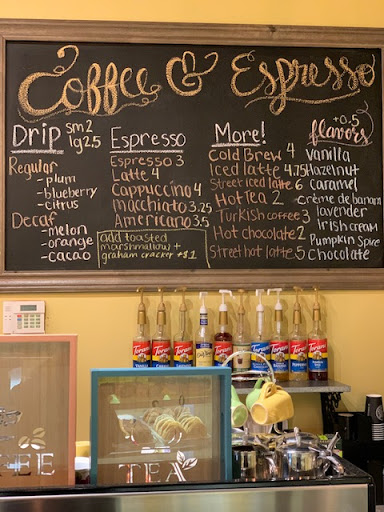 Coffee & Espresso
Drip sm 2
lg 2.5
Regular
- plum
- blueberry
- citrus
Decaf
- melon
- orange
- cacao
Espresso
Espresso 3
Latte 4
Cappuccino 4
macchiato 3.25
Americano 3.5
add toasted
marshmallow +
graham cracker +$1
More!
Cold Brew 4
Iced latte 4.75
Street iced latte 6
Hot Tea 2
Turkish coffee 3
Hot chocolate 2
Street hot latte 5
+0.5
flavors
Vanilla
Hazelnut
caramel
crème de banana
lavender
Irish cream
Pumpkin Spice
Chocolate
Torani
Torani
Torani
Torani
Torani
Torani
Torani
TEA